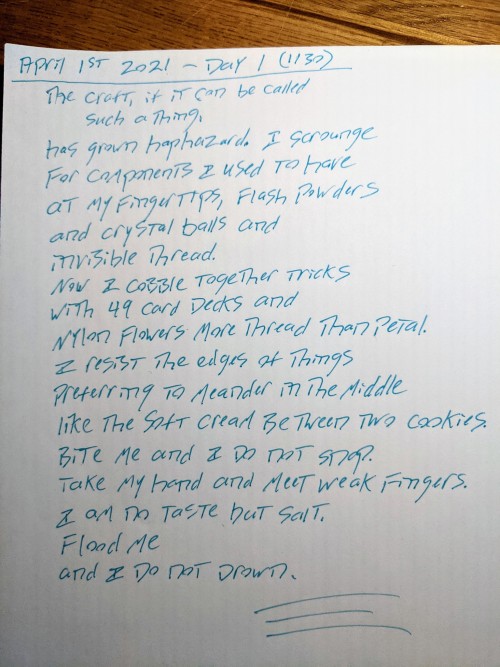 April 1st 2021 - Day 1 (1130)
The craft, if it can be called
such a thing,
has grown haphazard. I scrounge
For components I used to have
at my fingertips, Flash powders
and crystal balls and
invisible thread.
Now I cobble together tricks
with 49 card decks and
Nylon Flowers more thread than petal.
I resist the edges of things
preferring to meander in the middle
like the soft cream between two cookies.
Bite me and I do not snap.
Take my hand and meet weak fingers.
I am no taste but salt.
Flood me
and I do not drown.